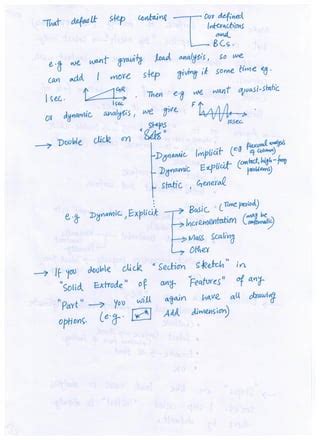 That default step contains → our defined
Interactions
and
BCs.
e.g we want gravity load analysis, so we
can add 1 more step giving it some time eg.
1 sec. 1sec . Then e.g we want quasi-static
or dynamic analysis, we give F 10sec
steps
→ Double click on "Sets"
Dynamic Implicit (eg flexural analysis of Column)
Dynamic Explicit (contact, high-freq problems)
Static, General
e.g Dynamic, Explicit → Basic (Time period)
→ Incrementation (must be automatic)
→ Mass Scaling
→ Other
→ If you double click "Section Sketch" in
"Solid Extrude" of any "Features" of any
"Part" → you will again have all drawing
options. (e.g. Add dimension)